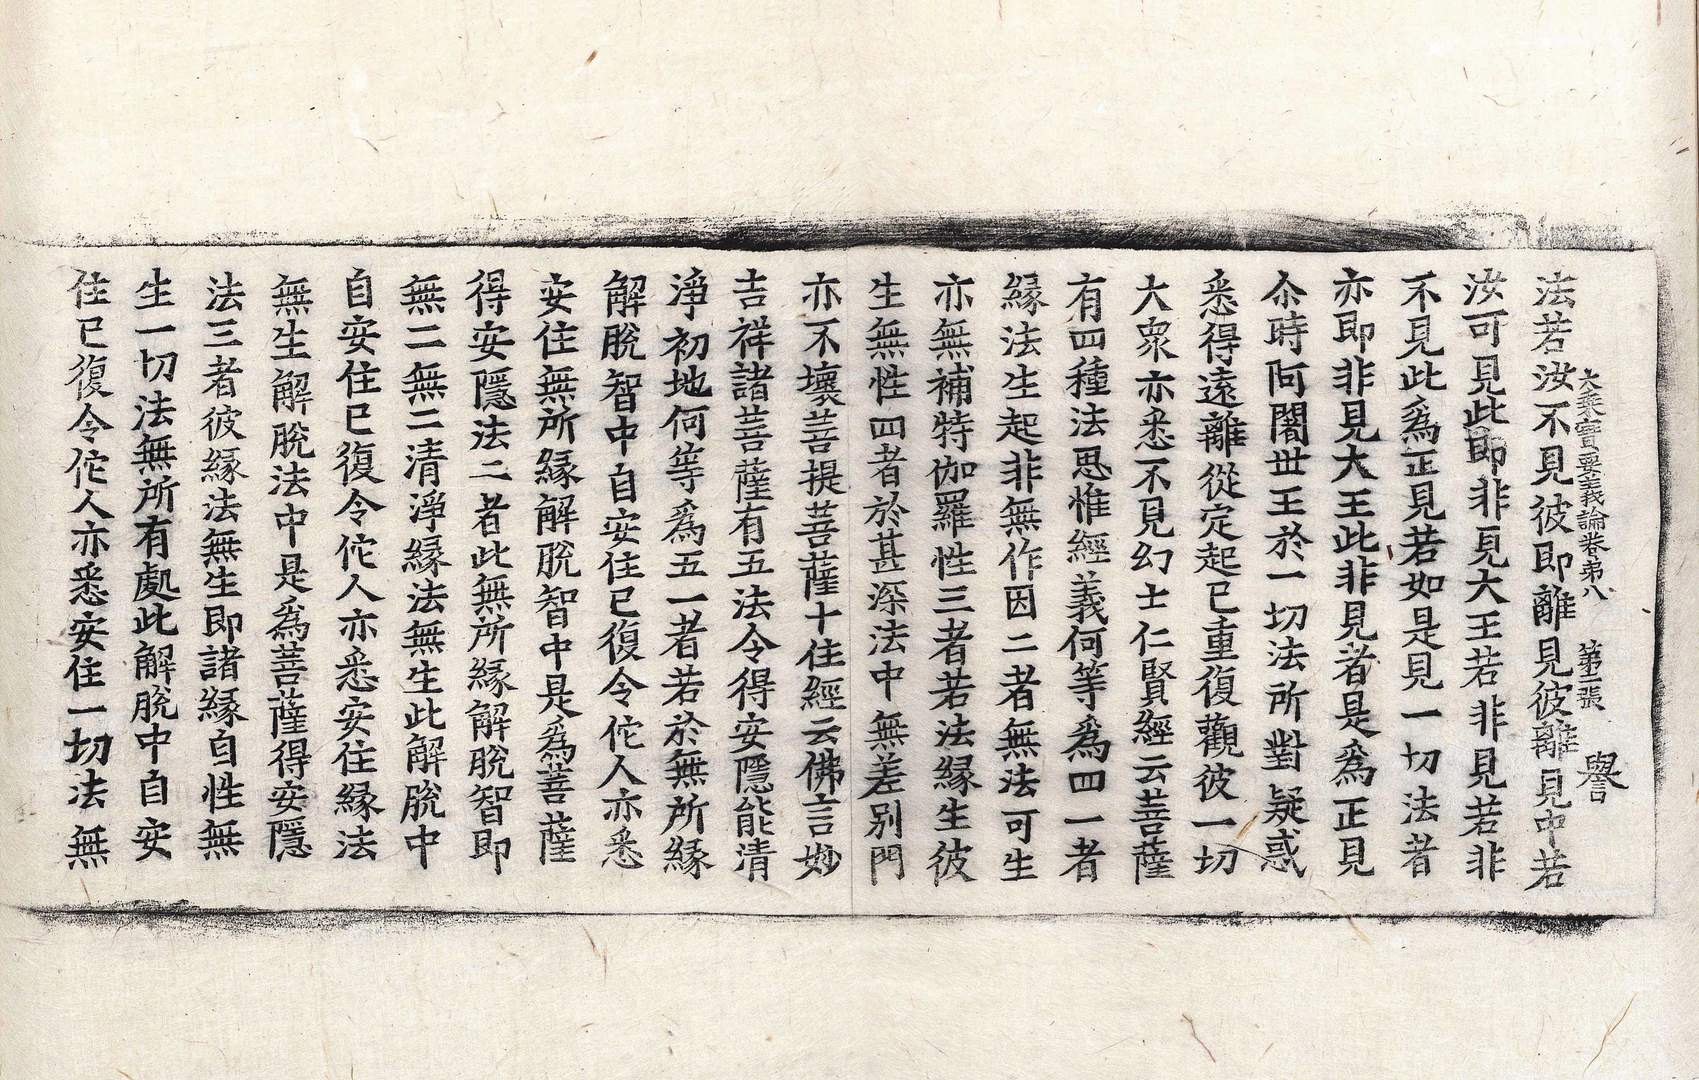 大乘寶要義論卷第八 第二張 譽
法若汝不見彼即離見彼離見中若
汝可見此即非見大王若非見若非
不見此為正見若如是見一切法者
亦即非見大王此非見者是為正見
尒時阿闍世王於一切法所對疑惑
悉得遠離從定起已重復觀彼一切
大衆亦悉不見幻士仁賢經云菩薩
有四種法思惟經義何等為四一者
緣法生起非無作因二者無法可生
亦無補特伽羅性三者若法緣生彼
生無性四者於甚深法中無差別門
亦不壞菩提菩薩十住經云佛言妙
吉祥諸菩薩有五法令得安隱能清
淨初地何等為五一者若於無所緣
解脫智中自安住已復令佗人亦悉
安住無所緣解脫智中是為菩薩
得安隱法二者此無所緣解脫智即
無二無二清淨緣法無生此解脫中
自安住已復令佗人亦悉安住緣法
無生解脫法中是為菩薩得安隱
法三者彼緣法無生即諸緣自性無
生一切法無所有處此解脫中自安
住已復令佗人亦悉安住一切法無